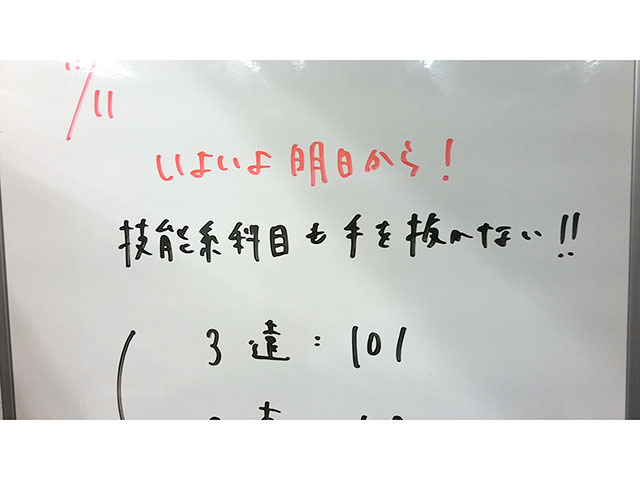 /11
いよいよ明日から!
技能系科目も手を抜かない!!
3遠:101